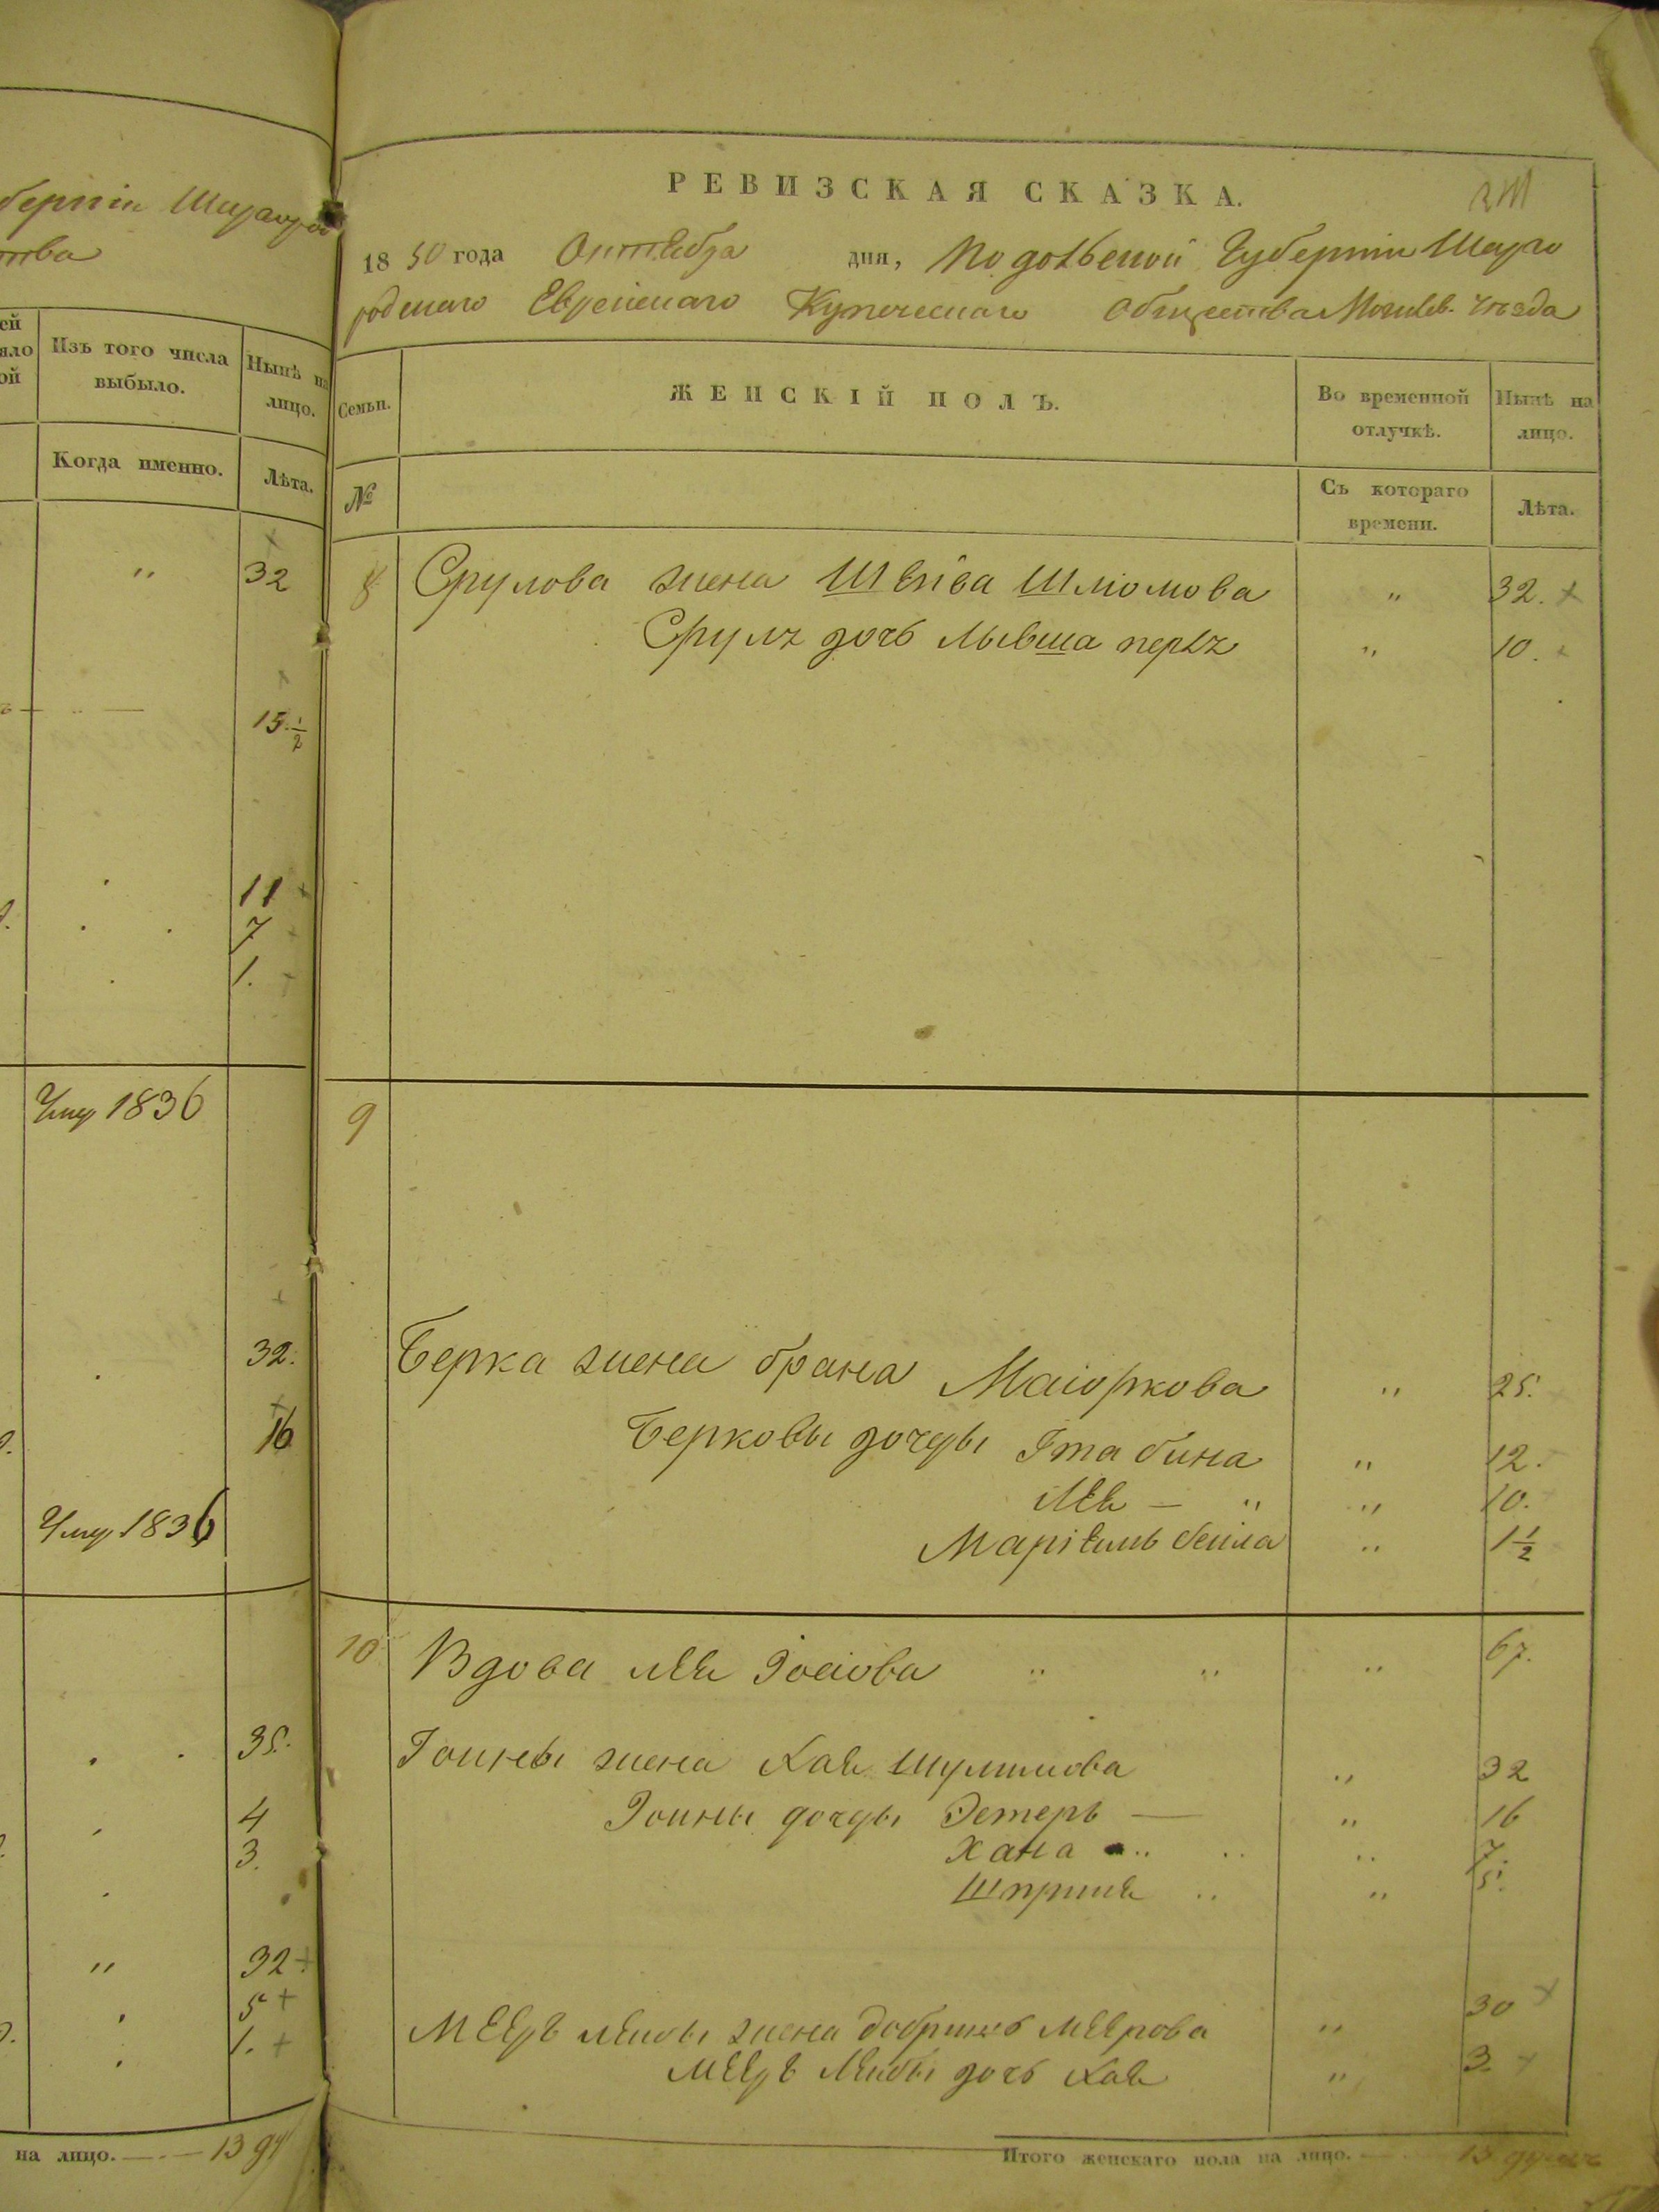 берніи Шаргоро
тва
ей
яло
ой
Изъ того числа
выбыло.
Нынѣ на
лицо.
Когда именно.
Лѣта.
" 32
15 1/2
11
7
1.
Умер 1836
32.
16
Умер 1836
35.
4
3.
" 32
5
1.
на лицо. 13 ду
РЕВИЗСКАЯ СКАЗКА.
1850 года Октября дня, Подольской Губерніи Шарго
родскаго Еврейскаго Купеческаго Общества Могилев. Уѣзда
Семьи.
ЖЕНСКІЙ ПОЛЪ.
Во временной
отлучкѣ.
Нынѣ на
лицо.
№
Съ котораго
времени.
Лѣта.
8 Срулова жена Шейва Шліомова " 32.
Срулъ дочь перлъ " 10.
9
Берка жена брана Маіоркова " 25.
Берковы дочери Ита бина " 12.
Лея — " " 10.
Маріемь бейла " 1 1/2
10 Вдова лея Іосіова " " " 67.
Іойны жена Хая Шулимова " 32
Іойны дочери Эстерь — " 16
Хана " " " 7.
Шприня " " 5.
Меерь лейбы жена добришь меерова " 30
Меерь лейбы дочь Хая " 3
Итого женскаго пола на лицо. — 13 душъ